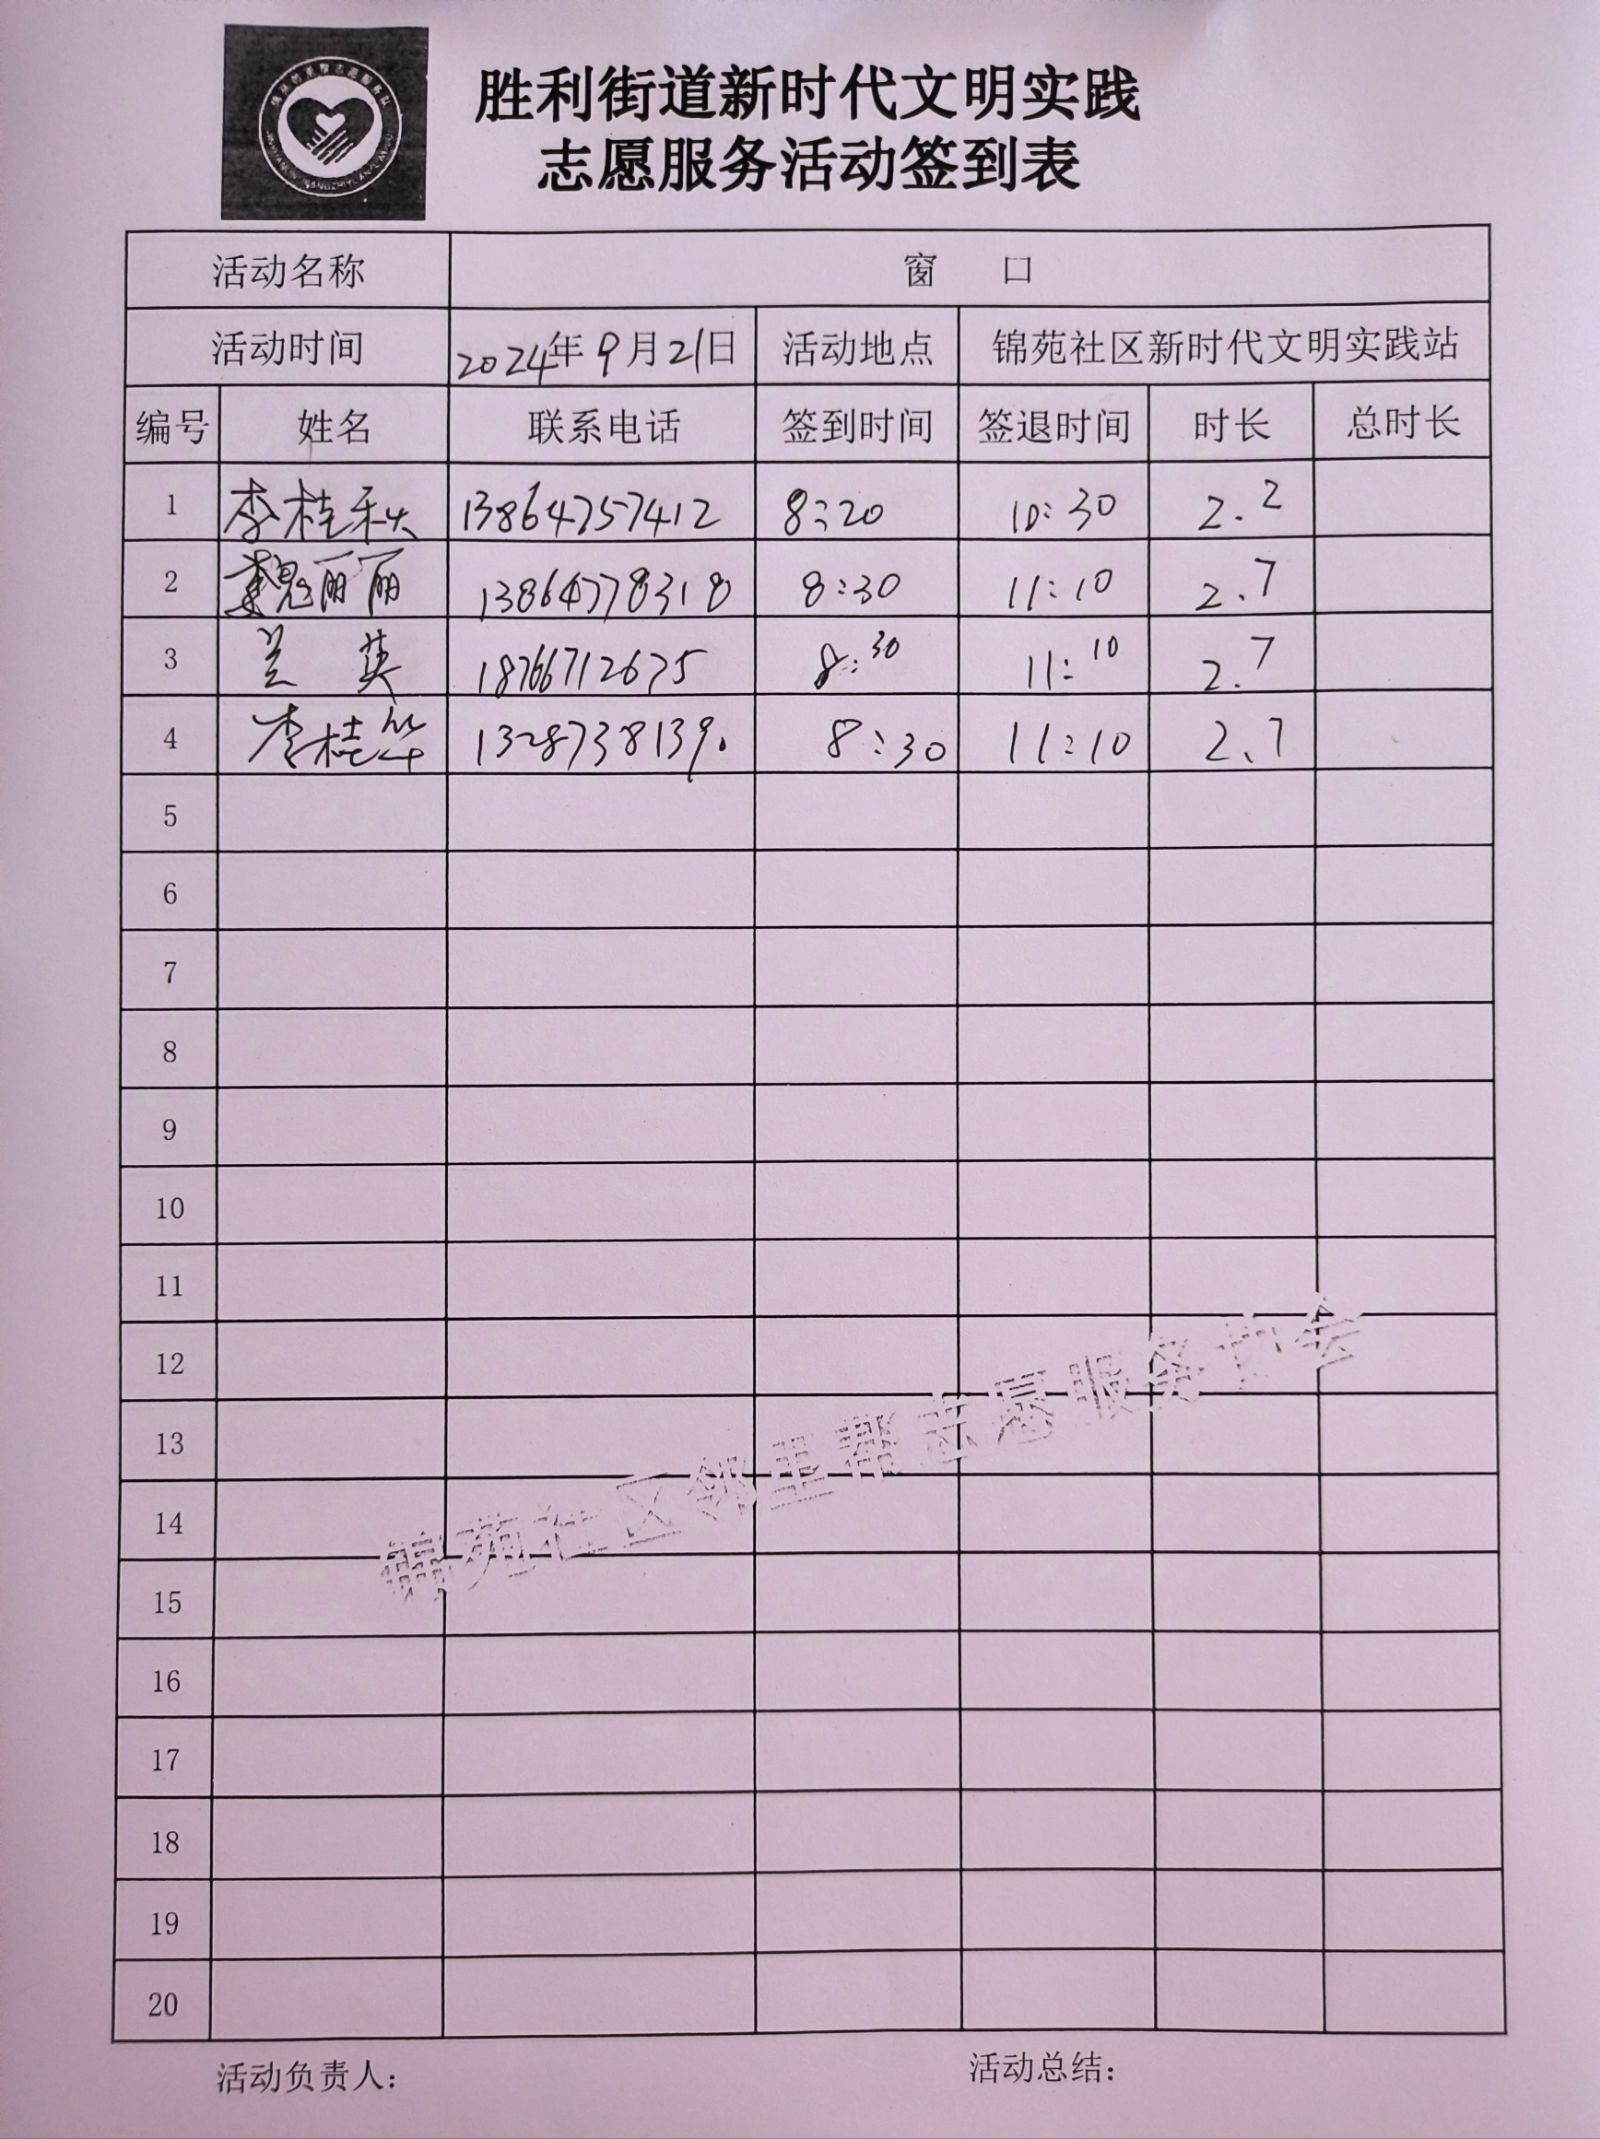 胜利街道新时代文明实践
志愿服务活动签到表
活动名称 窗 口
活动时间 2024年9月21日 活动地点 锦苑社区新时代文明实践站
编号 姓名 联系电话 签到时间 签退时间 时长 总时长
1 李桂秋 13864757412 8:20 10:30 2.2
2 魏丽丽 13864778318 8:30 11:10 2.7
3 兰英 18766712675 8:30 11:10 2.7
4 李桂华 1328738139. 8:30 11:10 2.7
5
6
7
8
9
10
11
12
13
14
15
16
17
18
19
20
锦苑社区邻里帮志愿服务协会
活动负责人: 活动总结: